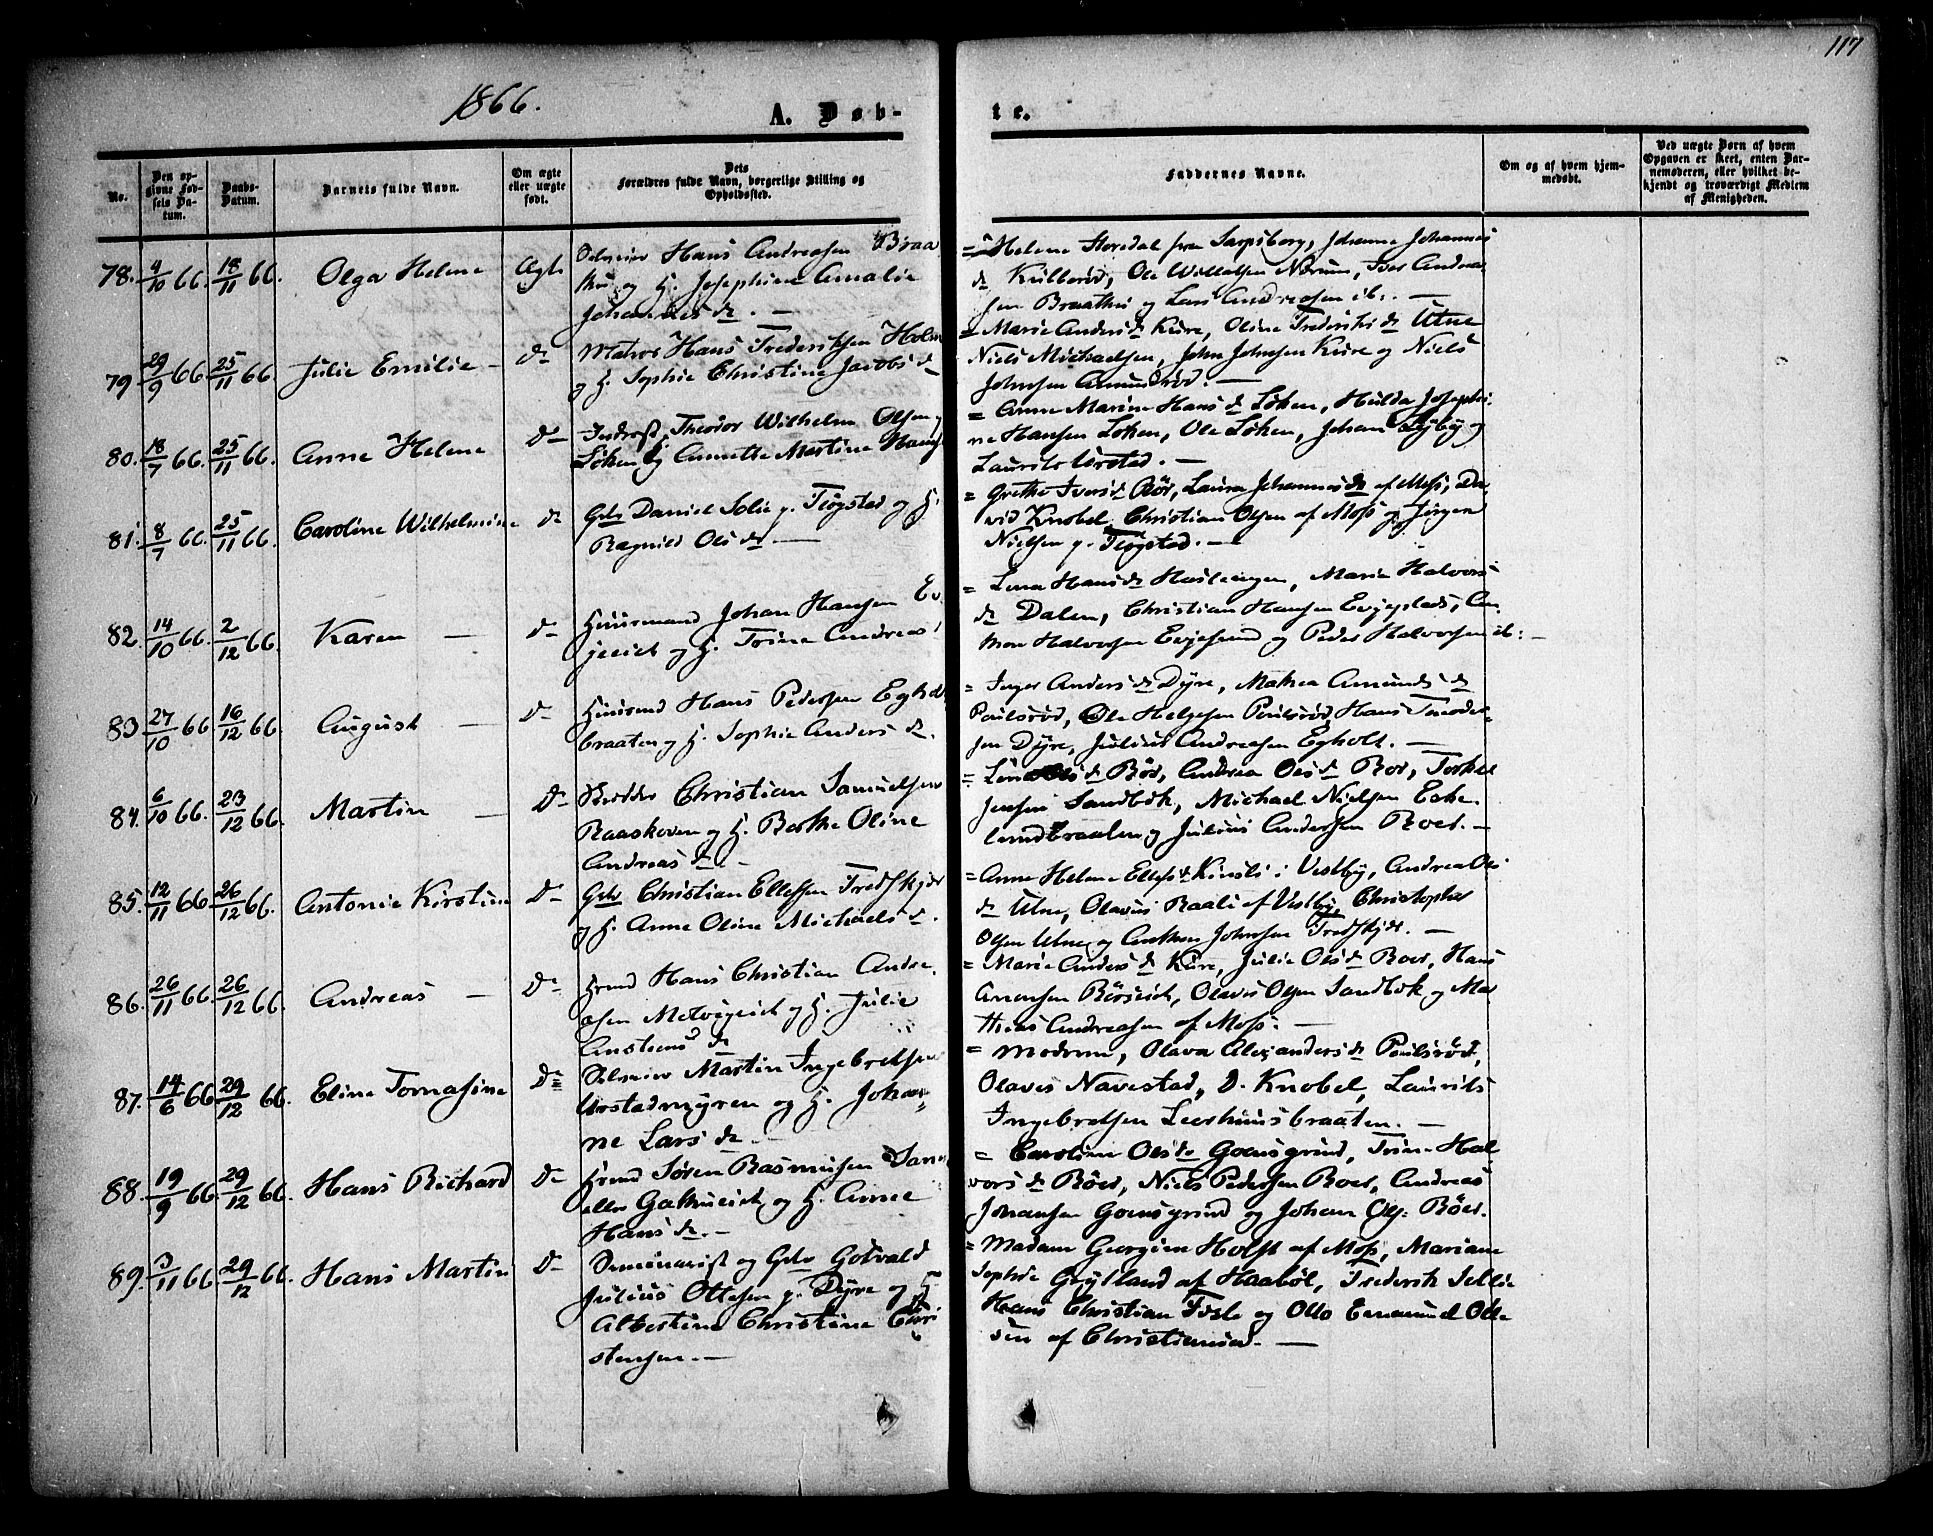 117
1866.
A. Døb-
te.
No.
Den opgivne Fødsels Datum.
Daabs-Datum.
Barnets fulde Navn.
Om ægte eller uægte født.
Dets Forældres fulde Navn, borgerlige Stilling og Opholdssted.
Faddernes Navne.
Om og af hvem hjemmedøbt.
Ved uægte Børn af hvem Opgaven er skeet, enten Barnemoderen, eller hvilket bekjendt og troværdigt Medlem af Menigheden.
78. 4/10 66. 18/11 66. Olga Helene Ægte
Selveier Hans Andreasen Braa
then og H. Josephine Amalie
Johannesdr. —
= Helene Storedal fra Sarpsborg, Johanne Johannes
dr Kullerød, Ole Willelsen Nærum, Iver Andrea
sen Braathen og Lars Andreasen ib. —
79 29/9 66 25/11 66. Julie Emilie — Do
Matros Hans Frederiksen Holm
og H. Sophie Christine Jacobsdr
= Marie Andersdr Kure, Oline Frederiksdr Utne
Niels Michaelsen, John Johnsen Kure og Niels
Johnsen Amundrød. —
80. 18/7 66. 25/11 66. Anne Helene Do
Inderst Theodor Wilhelm Olsen
Løken og Annette Martine Hans
= Anne Marine Hansdr Løken, Hulda Josephi-
ne Hansen Løken, Ole Løken, Johan Lyby og
Laurits Urstad. —
81. 8/7 66. 25/11 66. Caroline Wilhelmine do
Gdr Daniel Solie p. Tiøgsted og H.
Ragnild Olsdr —
= Grethe Iversdr Rør, Laura Johannesdr af Moss, Da-
vid Knobel, Christian Olsen af Moss og Jørgen
Nielsen p. Tiøgsted. —
82. 14/10 66. 2/12 66. Karen — Do
Huusmand Johan Hansen Ev
jeeiet og H. Trine Andreas
= Lina Hansdr Hasleengen, Marie Halvors
dr Dalen, Christian Hansen Evjeplads, An-
mon Halvorsen Evjesund og Peder Halvorsen ib: —
83 27/10 66 16/12 66. August — Do
Huusmd Hans Pedersen Egholt
braaten og H. Sophie Andersdr.
= Inger Andersdr Dyre, Mathea Amundsdr
Poulsrød, Ole Helgesen Poulsrød, Hans Theodor-
sen Dyre, Julius Andreasen Egholt. —
84. 6/10 66. 23/12 66. Martin — Do
Skrædder Christian Samuelsen
Raaskoven og H. Berthe Oline
Andreasdr —
= Lina Olsdr Rør, Andrea Olsdr Roer, Torkel
Jensen Sandbæk, Michael Nielsen Eke-
lundbraaten og Julius Andersen Roer. —
85. 12/11 66 26/12 66. Antonie Kirstine Do
Gdr Christian Ellefsen Fredskjær
og H. Anne Oline Michaelsdr.
= Anne Helene Ellefsdr Kinsli i Vestby, Andrea Ols
dr Utne, Olavus Raali af Vestby, Christopher
Olsen Utne og Anthon Johnsen Fredskjær. —
86. 26/11 66. 26/12 66. Andreas — Do
Hmd Hans Christian Andre-
asen Molvigeiet og H. Julie
Anstensdr
= Marie Andersdr Kure, Julie Olsdr Roer, Hans
Amonsen Rørseiet, Olavis Olsen Sandbæk og Ma
thias Andreasen af Moss. —
87. 14/6 66 29/12 66. Eline Tomasine Do
Selveier Martin Ingebretsen
Urstadmyren og H. Johan-
ne Larsdr —
= Modrum, Olava Alexandersdr Poulsrød,
Olaves Navestad, D. Knobel, Laurits
Ingebretsen Leerhuusbraaten. —
88. 19/9 66. 29/12 66. Hans Richard Do
Hmd Søren Rasmusen San
eller Galhueiet og H. Anne
Hansdr. —
= Caroline Olsdr Goensgrind, Trine Hal
vorsdr Röer, Niels Pedersen Roer, Andreas
Johansen Goensgrind og Johan Ols. Röer.
89. 3/11 66. 29/12 66. Hans Martin Do
Seminarist og Gdr Gotvald
Julius Ottesen p. Dyre og H.
Albertine Christine Chri
stensen. —
= Madam Georgine Holst af Moss, Mariane
Sophie Grylland af Haabøl, Frederik Sellie
Hans Christian Fosle og Otto Emanuel Otte
sen af Christiania. —